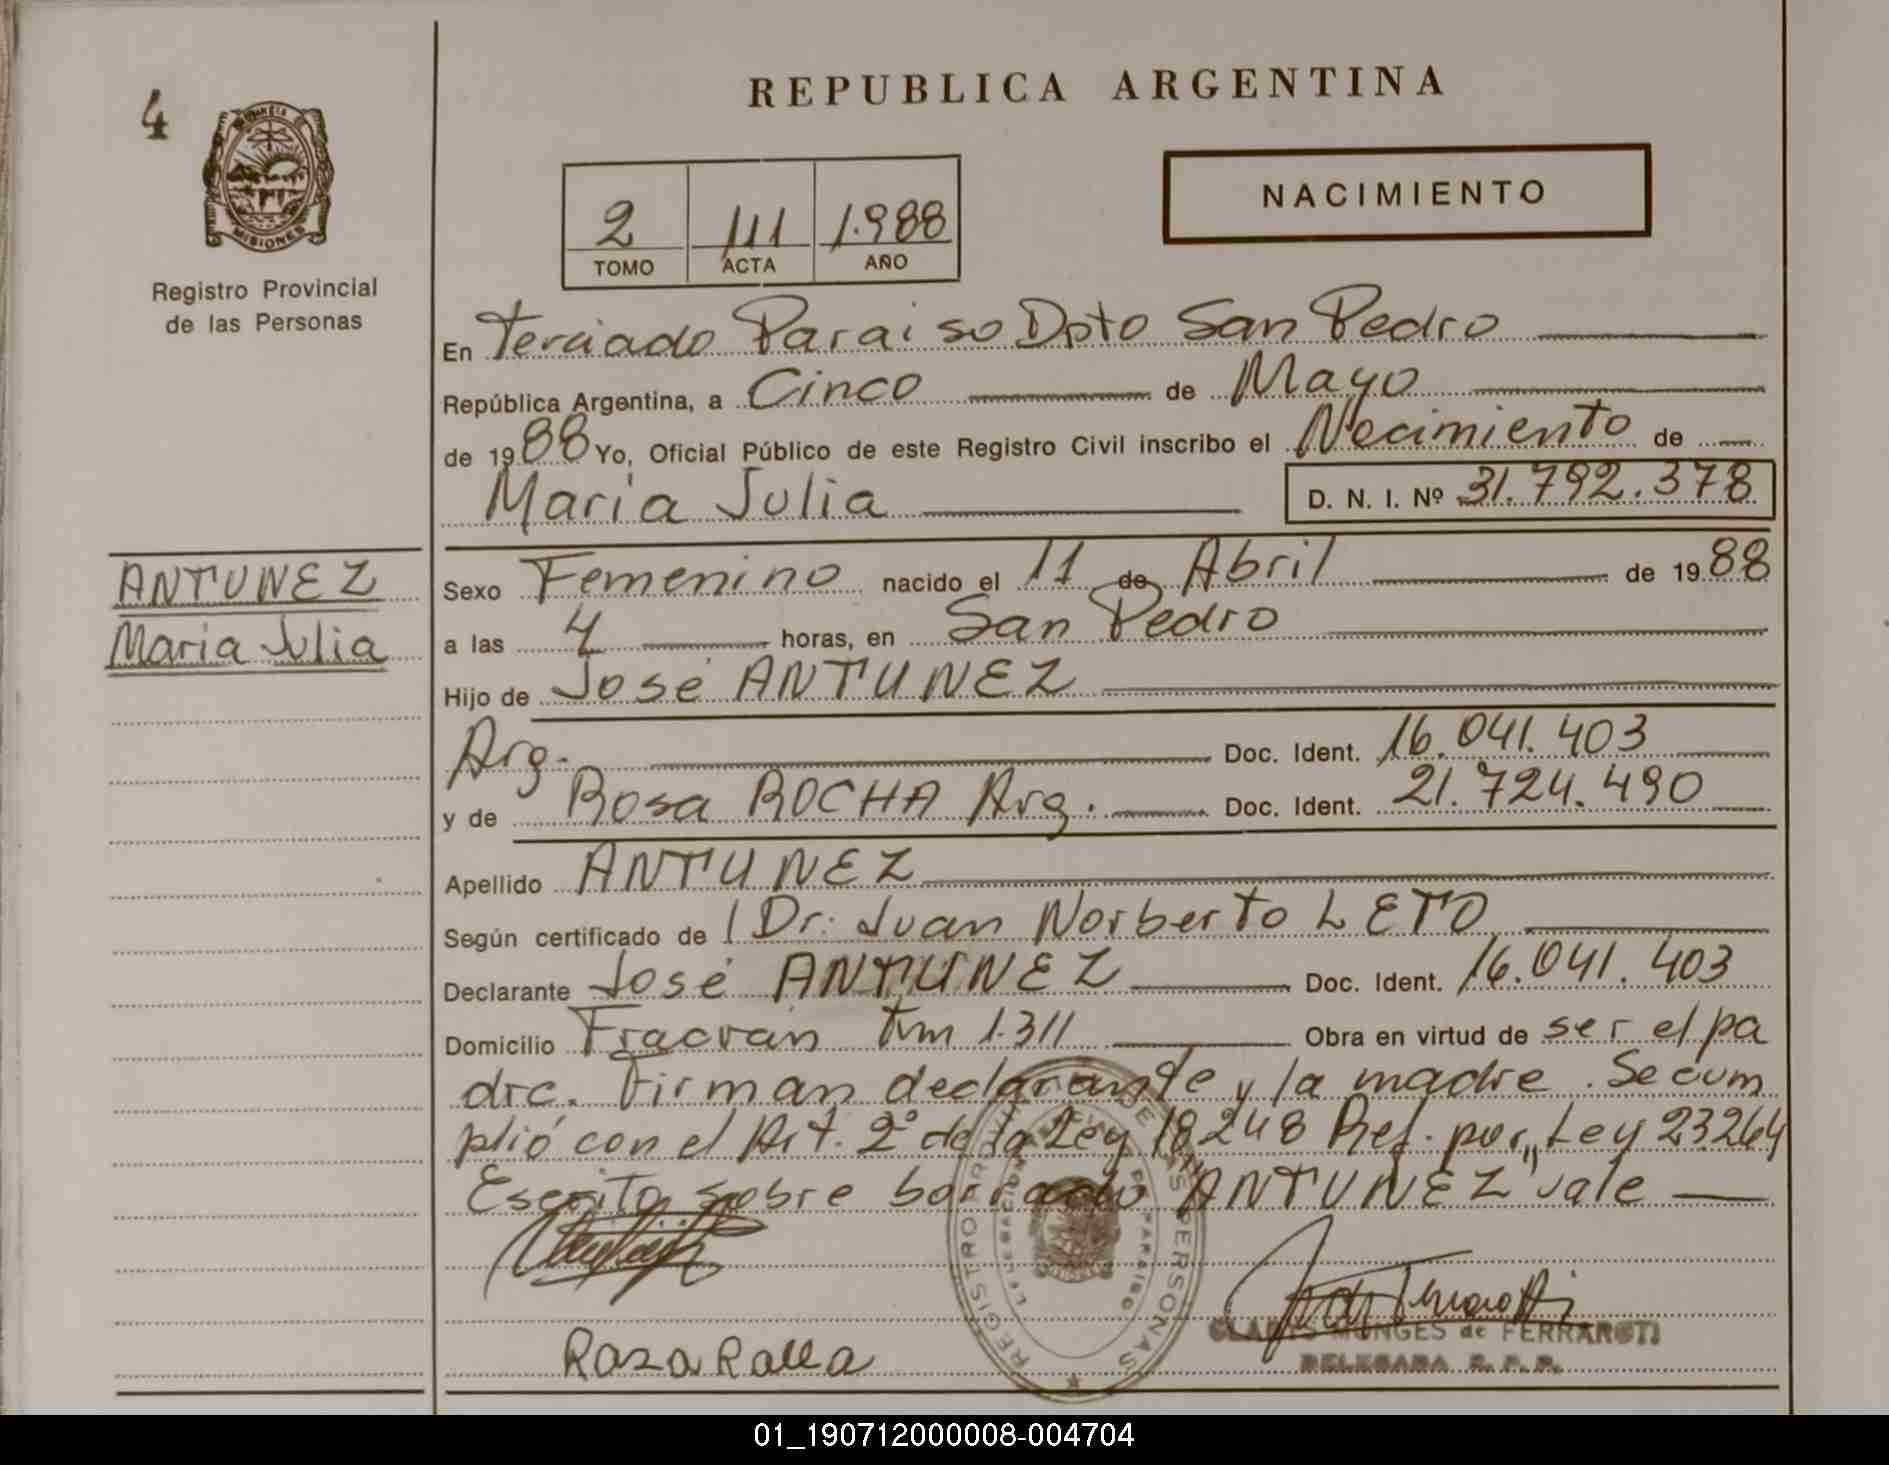 REPUBLICA ARGENTINA
4
MISIONES
Registro Provincial
de las Personas
2 111 1.988
TOMO ACTA AÑO
NACIMIENTO
En Terciado Paraiso Dpto San Pedro
República Argentina, a Cinco de Mayo
de 1988 Yo, Oficial Público de este Registro Civil inscribo el Nacimiento de
Maria Julia D. N. I. Nº 31.792.378
ANTUNEZ
Maria Julia
Sexo Femenino nacido el 11 de Abril de 1988
a las 4 horas, en San Pedro
Hijo de José ANTUNEZ
Arg. Doc. Ident. 16.041.403
y de Rosa ROCHA Arg. Doc. Ident. 21.724.490
Apellido ANTUNEZ
Según certificado de Dr. Juan Norberto LETO
Declarante José ANTUNEZ Doc. Ident. 16.041.403
Domicilio Fracran Km 1.311 Obra en virtud de ser el pa
dre. Firman declarante y la madre. Se cum
plió con el Art. 2º de la Ley 18248 Ref. por Ley 23264
Escrito sobre borrado "ANTUNEZ" vale
REGISTRO DE LAS PERSONAS
DELEGACION PARAISO
GLADIS MONGES de FERRAROTI
DELEGADA R. P. P.
01_190712000008-004704